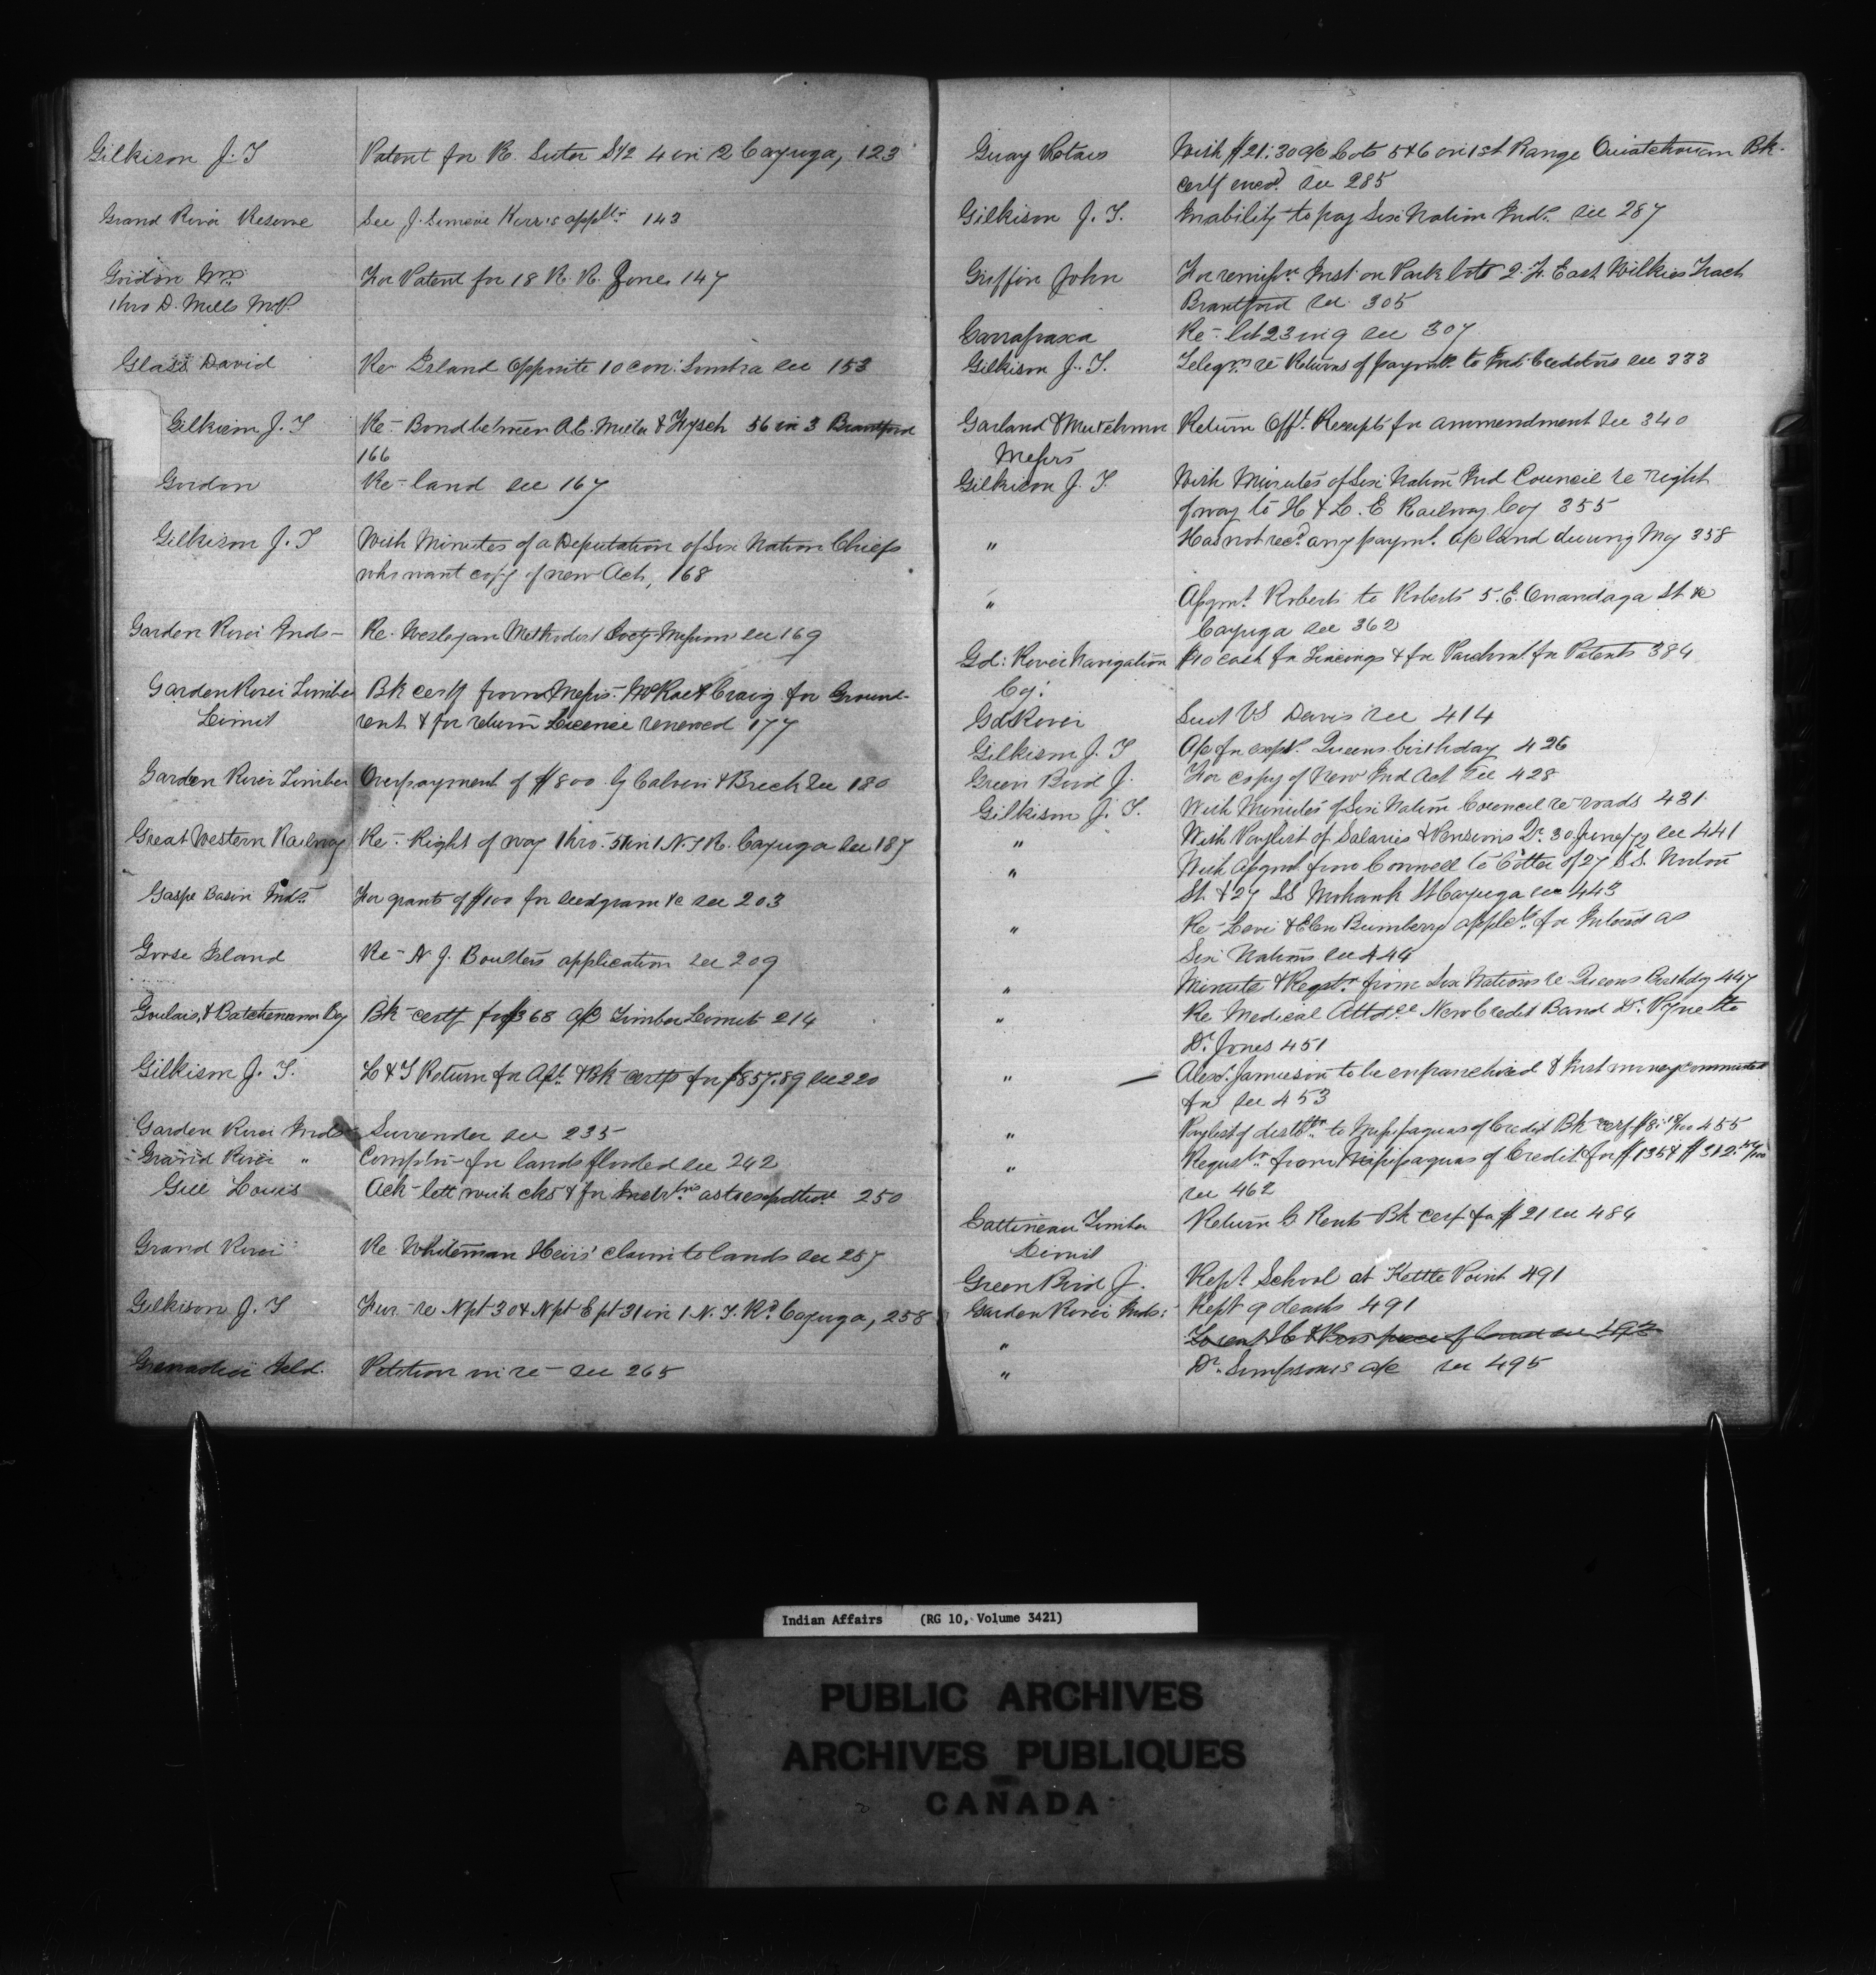 Gilkison J. T Patent for R. Suter S1/2 4 in 2 Cayuga, 123
Grand River Reserve See J. Simcoe Kerr's applts 143
Gordon Wm For Patent for 18 R. R. Zone. 147
thro D. Mills M.P.
Glass David Re Island Opposite 10 con: Sombra see 153
Gilkison J. T Re- Bond between A.C. & 56 in 3 Brantford
166
Gordon Re- land see 167
Gilkison J. T With Minutes of a Deputation of Six Nation Chiefs
who want copy of new Act, 168
Garden River Inds- Re- Wesleyan Methodist Socty Mission see 169
Garden River Timber Bk certf from Messrs. McRae & Craig for Ground-
Limit rent & for return Licence renewed 177
Garden River Timber Overpayment of $800 by Calvin & Breck see 180
Great Western Railway Re- Right of way thro. 51 in 1 N.T R. Cayuga see 187
Gaspe Basin Inds For grants of $100 for seedgrain &c see 203
Goose Island Re- N J. Boulter's application see 209
Goulais, & Batchewana Bay Bk- certf for $368 a/c Timber Limit 214
Gilkison J. T. L & T Return for Apl. & Bk certfs for $857.89 see 220
Garden River Inds Surrender see 235
Grand River " Compltn- for lands flooded see 242
Gill Louis Ack- lett with cks & for Instr.tns as to 250
Grand River Re Whiteman Heirs' claim to lands see 257
Gilkison J. T Fur. re N pt 30 & N pt E pt 31 in 1 N. T. Rd Cayuga, 258
Grenadier Isld. Petition in re- see 265
Guay With $21.30 a/c Lots 5 & 6 on 1st Range Ouiatchouan Bk-
certf encd. see 285
Gilkison J. T. Inability to pay Six Nation Inds. see 287
Griffin John For remissn. Inst on Park lots 2. F. East Wilkes Tract
Brantford see 305
Garrafraxa Re- lot 23 in 9 see 307
Gilkison J. T. Telegm. re Returns of paymts. to Ind: Creditors see 333
Garland & Mutchmor Return Off. Receipts for ammendment see 340
Messrs
Gilkison J. T With Minutes of Six Nation Ind Council re right
of way to H & L. E Railway Coy 355
" Has not recd. any paymt. a/c land during May 358
" Asgmt. Roberts to Roberts 5. E. Onandaga St &c
Cayuga see 362
Gd: River Navigation $10 cash for Tracings & for Parchmt. for Patents 384
Coy:
Gd River Suit VS Davis see 414
Gilkison J. T A/c for expts. Queens birthday 426
Green Bird J. For copy of New Ind Act see 428
Gilkison J. T. With Minutes of Six Nation Council re roads 431.
" With Paylist of Salaries & Pensions Qr. 30 June/72 see 441
" With Asgmt from Connell to Cotter of 27 S.S.
St. & 27 SS Mohawk St Cayuga see 443
" Re- Levi & Elen Bumberry applts. for Inteord as
Six Nations see 444
" Minute & Reqstn from Six Nations re Queens Birthday 447
" Re Medical Attdce New Credit Band Dr. Pyne to
Dr. Jones 451
" Alexr. Jamieson to be enfranchised & Inst money commuted
for see 453
" Paylist of distbtn. to Missisaguas of Credit Bk- cerf $8. 18/100 455
" Requstn from Missisaguas of Credit for $135 & $312.
see 462
Gattineau Timber Return G Rents Bk cerf for $21 see 484
Limit
Green Bird J. Rept. School at Kettle Point 491
Garden River Inds: Rept 9 deaths 491
" To rent piece of land see 493
" Dr. Simpson's a/c see 495
Indian Affairs (RG 10, Volume 3421)
PUBLIC ARCHIVES
ARCHIVES PUBLIQUES
CANADA